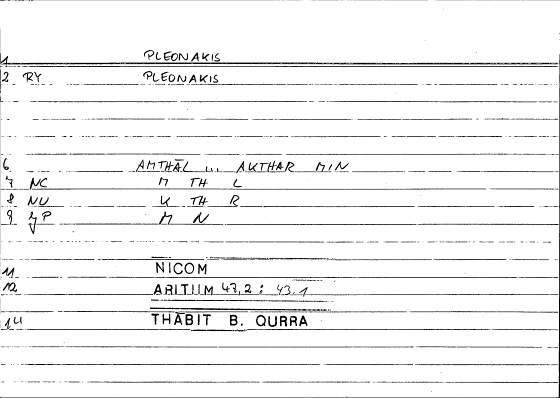 1 PLEONAKIS
2 RY PLEONAKIS
6 AMTHĀL ... AKTHAR MIN
7 NC M TH L
8 NU K TH R
9 ZP M N
11 NICOM
12 ARITIIM 47,2 : 43.1
14 THĀBIT B. QURRA